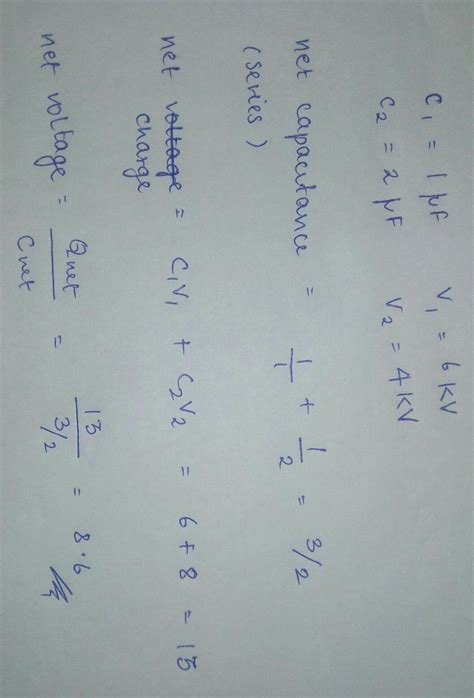 C₁ = 1 μF   V₁ = 6 KV
C₂ = 2 μF   V₂ = 4 KV
net capacitance = 1/1 + 1/2 = 3/2
(series)
net voltage = C₁V₁ + C₂V₂ = 6 + 8 = 13
charge
net voltage = Qnet/Cnet = 13/3/2 = 8.6